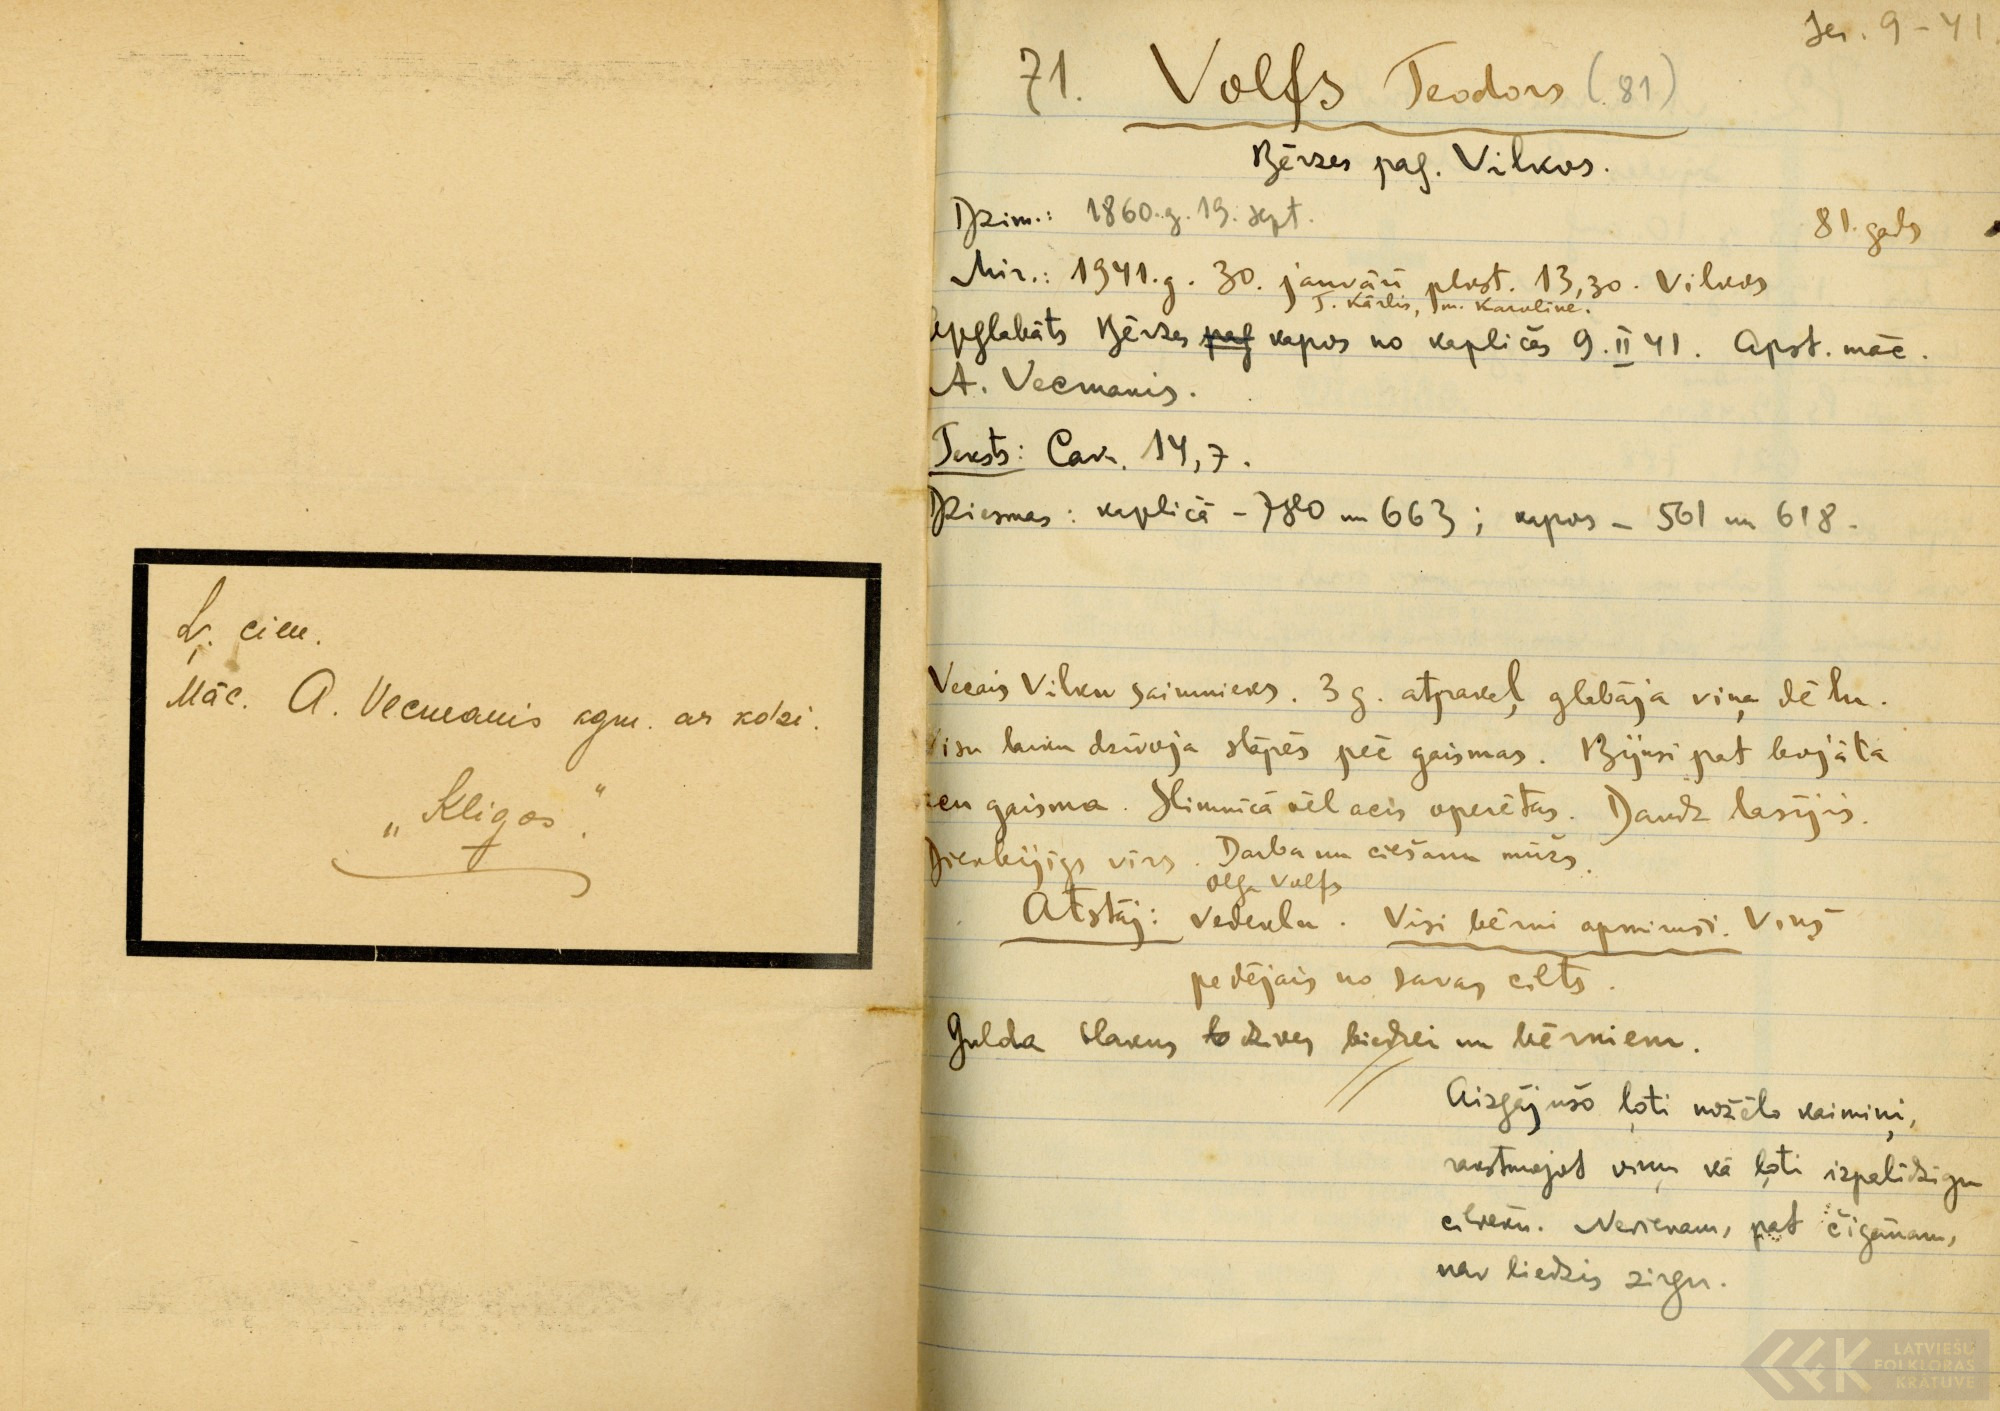 Ļ. cien.
Māc. A. Vecmanis kgm. ar kdzi.
„Kligos".
Jer. 9-41
71. Volfs Teodors (81)
Bērzes pag. Vilkos.
Dzim.: 1860.g. 19. sept. 81. gads
Mir.: 1941.g. 30. janvārī plkst. 13,30. Vilkos
T. Kārlis, m. Karoline.
Apglabāts Bērzes pag kapos no kapličas 9.II 41. Apst. māc.
A. Vecmanis.
Teksts: 14,7.
Dziesmas: kapličā - 780 un 663; kapos - 501 un 618.
Vecais Vilku saimnieks. 3 g. atpakaļ glabāja viņa dēlu.
Visu laiku dzīvoja slāpēs pēc gaismas. Bijusi pat bojāta
acu gaisma. Slimnīcā vēl acis operētas. Daudz lasījis.
Dievbijīgs vīrs. Darba un ciešanu mūžs.
Olga Volfs
Atstāj: vedeklu. Visi bērni apmiruši. Viņš
pēdējais no savas cilts.
Gulda blakus dzīves biedrei un bērniem.
Aizgājušo ļoti nožēlo kaimiņi,
raksturojot viņu kā ļoti izpalīdzīgu
cilvēku. Nevienam, pat čigānam,
nav liedzis zirgu.
LATVIEŠU
FOLKLORAS
KRĀTUVE